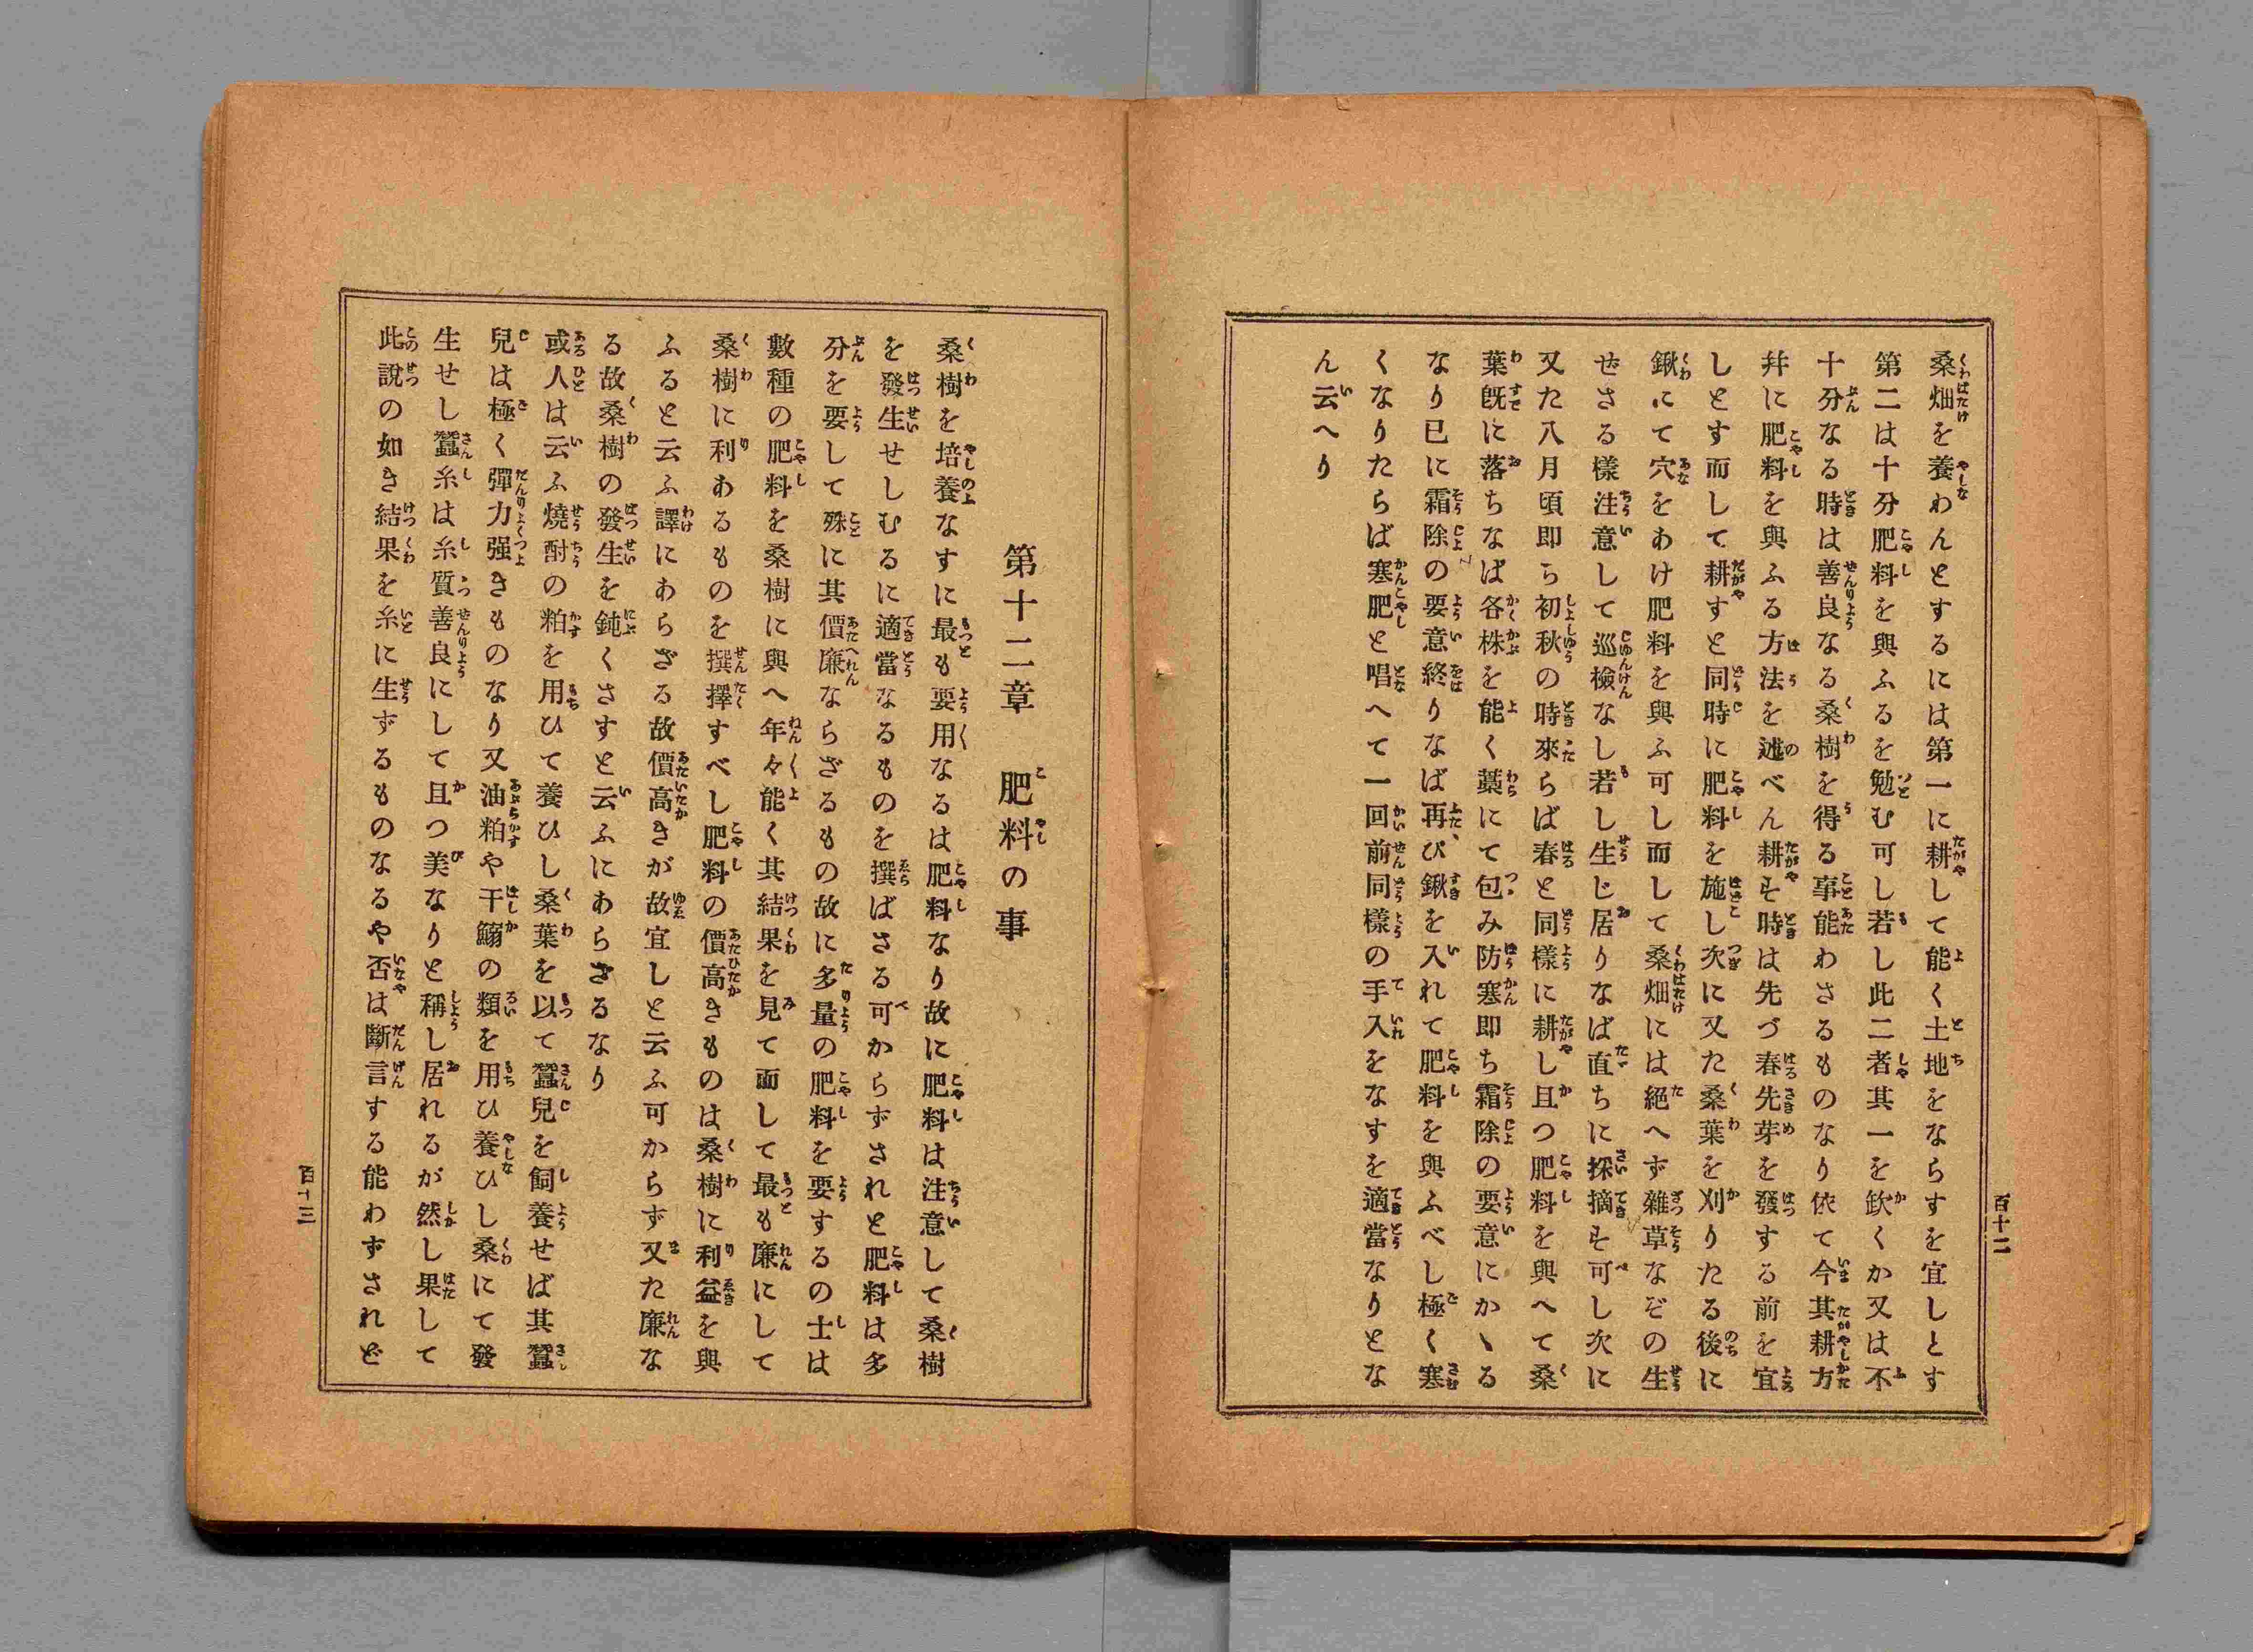 百十二
桑畑を養わんとするには第一に耕して能く土地をならすを宜しとす
第二は十分肥料を與ふるを勉む可し若し此二者其一を欽くか又は不
十分なる時は善良なる桑樹を得る事能わさるものなり依て今其耕方
幷に肥料を與ふる方法を述べん耕す時は先づ春先芽を發する前を宜
しとす而して耕すと同時に肥料を施し次に又た桑葉を刈りたる後に
鍬にて穴をあけ肥料を與ふ可し而して桑畑には絕へず雜草なぞの生
せさる樣注意して巡檢なし若し生じ居りなば直ちに採摘す可し次に
又た八月頃即ち初秋の時來らば春と同樣に耕し且つ肥料を與へて桑
葉旣に落ちなば各株を能く藁にて包み防寒即ち霜除の要意にかゝる
なり已に霜除の要意終りなば再び鍬を入れて肥料を與ふべし極く寒
くなりたらば寒肥と唱へて一回前同樣の手入をなすを適當なりとな
ん云へり
第十二章　肥料の事
桑樹を培養なすに最も要用なるは肥料なり故に肥料は注意して桑樹
を發生せしむるに適當なるものを撰ばさる可からずされと肥料は多
分を要して殊に其價廉ならざるもの故に多量の肥料を要するの士は
數種の肥料を桑樹に與へ年々能く其結果を見て而して最も廉にして
桑樹に利あるものを撰擇すべし肥料の價高きものは桑樹に利益を與
ふると云ふ譯にあらざる故價高きが故宜しと云ふ可からず又た廉な
る故桑樹の發生を鈍くさすと云ふにあらざるなり
或人は云ふ燒酎の粕を用ひて養ひし桑葉を以て蠶兒を飼養せば其蠶
兒は極く彈力强きものなり又油粕や干鰯の類を用ひ養ひし桑にて發
生せし蠶糸は糸質善良にして且つ美なりと稱し居れるが然し果して
此說の如き結果を糸に生ずるものなるや否は斷言する能わずされど
百十三